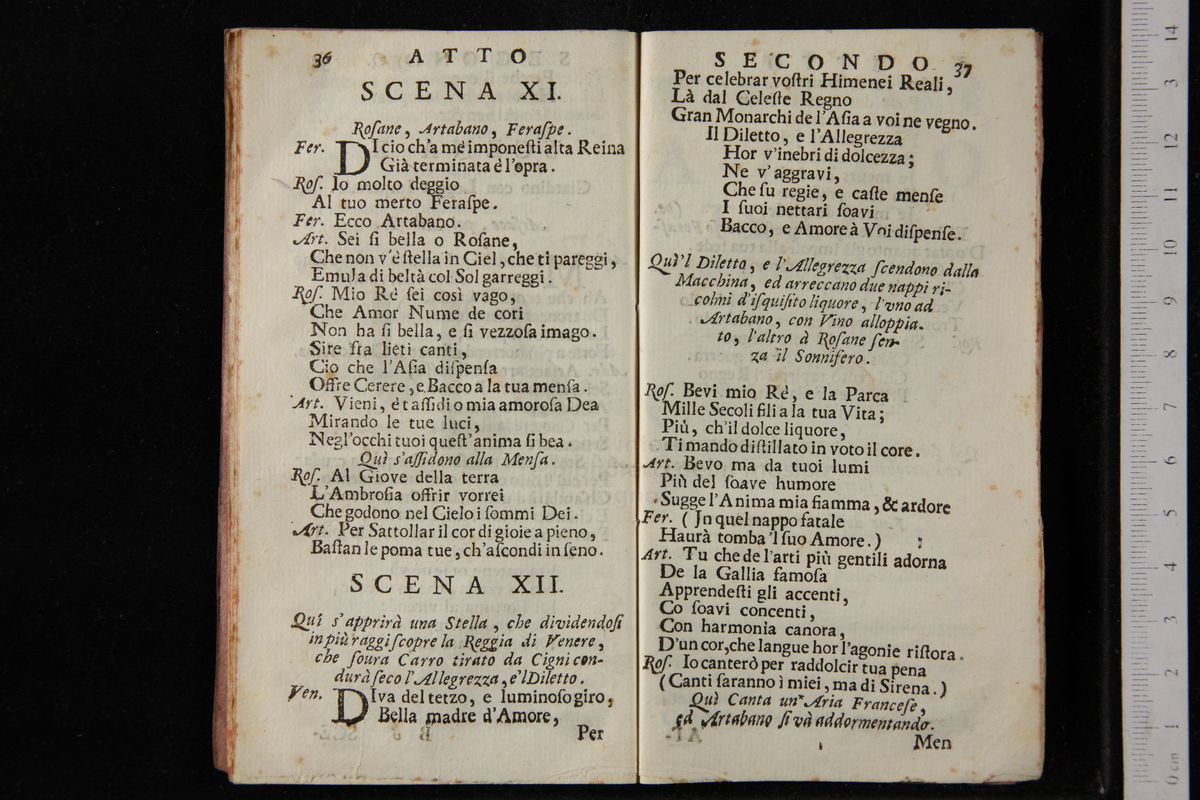 36 ATTO
SCENA XI.
Roſane, Artabano, Feraſpe.
Fer. DI cio ch'a me imponeſti alta Reina
Già terminata è l'opra.
Roſ. Io molto deggio
Al tuo merto Feraſpe.
Fer. Ecco Artabano.
Art. Sei ſi bella o Roſane,
Che non v'è ſtella in Ciel, che ti pareggi,
Emula di beltà col Sol garreggi.
Roſ. Mio Rè ſei così vago,
Che Amor Nume de cori
Non ha ſi bella, e ſi vezzoſa imago.
Sire fra lieti canti,
Cio che l'Aſia diſpenſa
Offre Cerere, e Bacco a la tua menſa.
Art. Vieni, è t aſſidi o mia amoroſa Dea
Mirando le tue luci,
Negl'occhi tuoi queſt'anima ſi bea.
Quì s'aſſidono alla Menſa.
Roſ. Al Giove della terra
L'Ambroſia offrir vorrei
Che godono nel Cielo i ſommi Dei.
Art. Per Sattollar il cor di gioie a pieno,
Baſtan le poma tue, ch'aſcondi in ſeno.
SCENA XII.
Quì s'apprirà una Stella, che dividendoſi
in più raggi ſcopre la Reggia di Venere,
che ſoura Carro tirato da Cigni con-
durà ſeco l'Allegrezza, e'l Diletto.
Ven. DIva del tetzo, e luminoſo giro,
Bella madre d'Amore,
Per
SECONDO. 37
Per celebrar voſtri Himenei Reali,
Là dal Celeſte Regno
Gran Monarchi de l'Aſia a voi ne vegno.
Il Diletto, e l'Allegrezza
Hor v'inebri di dolcezza;
Ne v'aggravi,
Che ſu regie, e caſte menſe
I ſuoi nettari ſoavi
Bacco, e Amore à Voi diſpenſe.
Quì'l Diletto, e l'Allegrezza ſcendono dalla
Macchina, ed arreccano due nappi ri-
colmi d'iſquiſito liquore, l'vno ad
Artabano, con Vino alloppia-
to, l'altro à Roſane ſen-
za il Sonnifero.
Roſ. Bevi mio Rè, e la Parca
Mille Secoli fili a la tua Vita;
Più, ch'il dolce liquore,
Ti mando diſtillato in voto il core.
Art. Bevo ma da tuoi lumi
Più del ſoave humore
Sugge l'Anima mia fiamma, & ardore
Fer. (Jn quel nappo fatale
Haurà tomba 'l ſuo Amore.) ;
Art. Tu che de l'arti più gentili adorna
De la Gallia famoſa
Apprendeſti gli accenti,
Co ſoavi concenti,
Con harmonia canora,
D'un cor, che langue hor l'agonie riſtora.
Roſ. Io canterò per raddolcir tua pena
(Canti ſaranno i miei, ma di Sirena.)
Quì Canta un' Aria Franceſe,
ed Artabano ſi và addormentando.
Men
14
3
13
12
11
10
9
8
7
6
2
5
4
3
1
2
1
0 cm